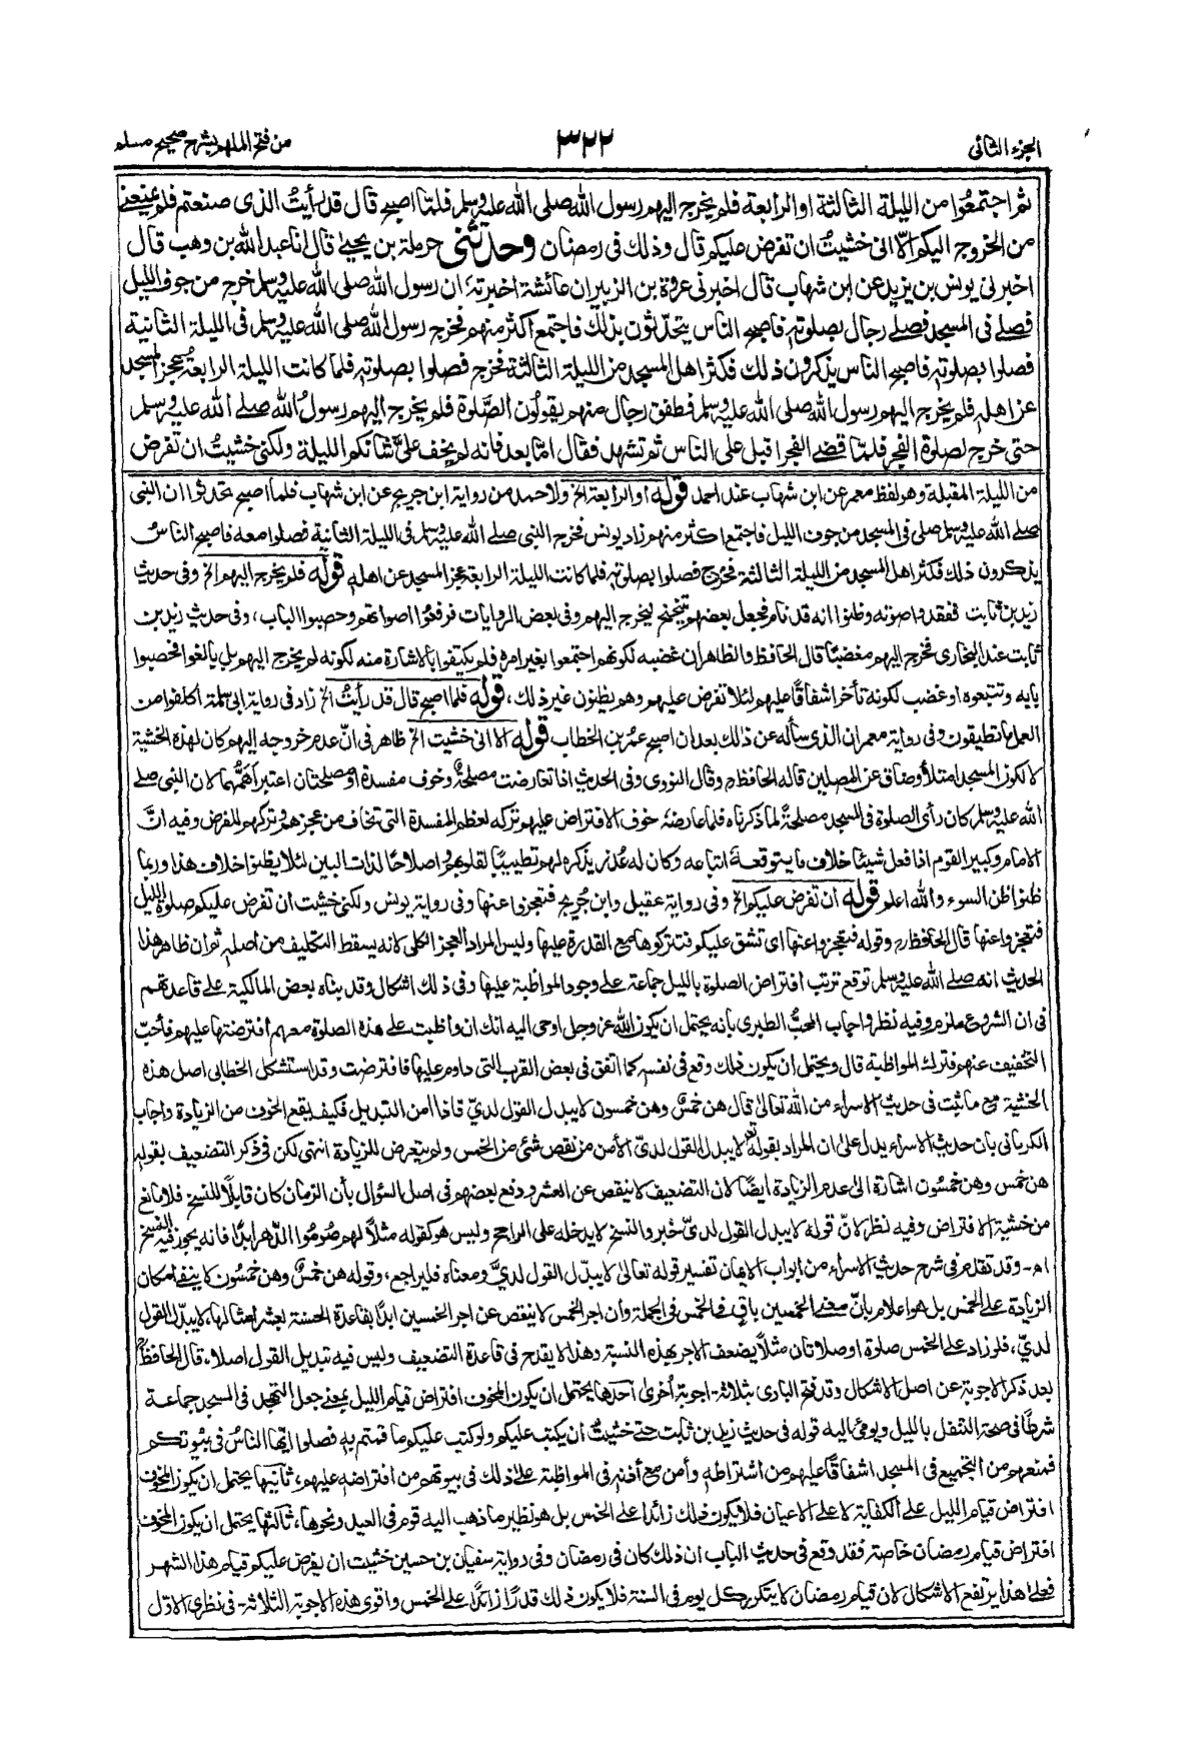 الجزء الثانی ۳۲۲ من فتح الملهم بشرح صحیح مسلم
ثم اجتمعوا من الليلة الثالثة او الرابعة فلم يخرج اليهم رسول الله صلى الله عليه وسلم فلمّا اصبح قال قد رأيتُ الذى صنعتم فلم يمنعنى
من الخروج اليكم الّا انى خشيتُ ان تفرض عليكم قال وذلك فى رمضان وحدثنى حرملة بن يحيىٰ قال انا عبد الله بن وهب قال
اخبرنى يونس بن يزيد عن ابن شهاب قال اخبرنى عروة بن الزبير ان عائشة اخبرته ان رسول الله صلى الله عليه وسلم خرج من جوف الليل
فصلى فى المسجد فصلى رجال بصلوته فاصبح الناس يتحدّثون بذلك فاجتمع اكثر منهم فخرج رسول الله صلى الله عليه وسلم فى الليلة الثانية
فصلوا بصلوته فاصبح الناس يذكرون ذلك فكثر اهل المسجد من الليلة الثالثة فخرج فصلوا بصلوته فلما كانت الليلة الرابعة عجز المسجد
عن اهله فلم يخرج اليهم رسول الله صلى الله عليه وسلم فطفق رجال منهم يقولون الصّلوة فلم يخرج اليهم رسولُ الله صلى الله عليه وسلم
حتى خرج لصلوة الفجر فلمّا قضى الفجر اقبل على الناس ثم تشهد فقال امّا بعد فانه لم يخف علىّ شانكم الليلة ولكنى خشيتُ ان تفرض
من الليلة المقبلة وهو لفظ معمر عن ابن شهاب عند احمد قوله او الرابعة الخ ولاحمد من رواية ابن جريج عن ابن شهاب فلما اصبح تحدثوا ان النبى
صلى الله عليه وسلم صلى فى المسجد من جوف الليل فاجتمع اكثر منهم زاد يونس فخرج النبى صلى الله عليه وسلم فى الليلة الثانية فصلوا معه فاصبح الناس
يذكرون ذلك فكثر اهل المسجد من الليلة الثالثة فخرج فصلوا بصلوته فلما كانت الليلة الرابعة عجز المسجد عن اهله قوله فلم يخرج اليهم الخ وفى حديث
زيد بن ثابت ففقدوا صوته وظنوا انه قد نام فجعل بعضهم يتنحنح ليخرج اليهم وفى بعض الروايات فرفعوا اصواتهم وحصبوا الباب، وفى حديث زيد بن
ثابت عند البخارى فخرج اليهم مغضبًا قال الحافظ والظاهر ان غضبه لكونهم اجتمعوا بغير امره فلم يكتفوا بالاشارة منه لكونه لم يخرج اليهم بل بالغوا فحصبوا
بابه وتتبعوه او غضب لكونه تأخر اشفاقًا عليهم لئلا تفرض عليهم وهم يظنون غير ذلك، قوله فلما اصبح قال قد رأيتُ الخ زاد فى رواية ابى سلمة اكلفوا من
العمل ما تطيقون وفى رواية معمر ان الذى سأله عن ذلك بعد ان اصبح عمر بن الخطاب قوله الا انى خشيت الخ ظاهر فى انّ عدم خروجه اليهم كان لهذه الخشية
لا لكون المسجد امتلأ وضاق عن المصلين قاله الحافظ وقال النووى وفى الحديث اذا تعارضت مصلحةٌ وخوف مفسدة او مصلحتان اعتبر اهمّهما لان النبى صلى
الله عليه وسلم كان رأى الصلوة فى المسجد مصلحةً لما ذكرناه فلما عارضه خوف الافتراض عليهم تركه لعظم المفسدة التى تخاف من عجزهم وتركهم للفرض وفيه انّ
الامام وكبير القوم اذا فعل شيئًا خلاف ما يتوقعه اتباعه وكان له عذر يذكره لهم تطييبًا لقلوبهم واصلاحًا لذات البين لئلا يظنوا خلاف هذا وربما
ظنوا ظن السوء والله اعلم قوله ان تفرض عليكم الخ وفى رواية عقيل وابن جُريج فتعجزوا عنها وفى رواية يونس ولكنى خشيت ان تفرض عليكم صلوة الليل
فتعجزوا عنها قال الحافظ وقوله فتعجزوا عنها اى تشق عليكم فتتركوها مع القدرة عليها وليس المراد العجز الكلى لانه يسقط التكليف من اصله ثم ان ظاهر هذا
الحديث انه صلى الله عليه وسلم توقع ترتب افتراض الصلوة بالليل جماعة على وجود المواظبة عليها وفى ذلك اشكال وقد بناه بعض المالكية على قاعدتهم
فى ان الشروع ملزم وفيه نظر واجاب المحبّ الطبرى بانه يحتمل ان يكون الله عز وجل اوحى اليه انك ان واظبت على هذه الصلوة معهم افترضتها عليهم فأحبّ
التخفيف عنهم فترك المواظبة قال ويحتمل ان يكون ذلك وقع فى نفسه كما اتفق فى بعض القرب التى داوم عليها فافترضت وقد استشكل الخطابى اصل هذه
الخشية مع ما ثبت فى حديث الاسراء من الله تعالىٰ قال هن خمسٌ وهن خمسون لا يبدل القول لدىّ فاذا امن التبديل فكيف يقع الخوف من الزيادة واجاب
الكرمانى بان حديث الاسراء يدل على ان المراد بقوله تعالى لا يبدل القول لدىّ الأمن من نقص شئ من الخمس ولم يتعرض للزيادة انتهى لكن فى ذكر التضعيف بقوله
هن خمس وهن خمسون اشارة الى عدم الزيادة ايضًا لان التضعيف لا ينقص عن العشر ودفع بعضهم فى اصل السؤال بأن الزمان كان قابلًا للنسخ فلا مانع
من خشية الافتراض وفيه نظر لانّ قوله لا يبدل القول لدىّ خبر والنسخ لا يدخله على الراجح وليس هو كقوله مثلًا لهم صُوموا الدهر ابدًا فانه يجوز فيه النسخ
اھ- وقد تقدم فى شرح حديث الاسراء من ابواب الايمان تفسير قوله تعالىٰ لا يبدّل القول لدىّ ومعناه فليراجع، وقوله هن خمسٌ وهن خمسُون لا ينفى امكان
الزيادة على الخمس بل هو اعلام بانّ معنى الخمسين باقٍ فى الخمس فى الجملة وان اجر الخمس لا ينقص عن اجر الخمسين ابدًا بقاعدة الحسنة بعشر امثالها، لا يبدّل القول
لدىّ، فلو زاد على الخمس صلوة او صلاتان مثلًا يضعف الاجر بهذه النسبة وهذا لا يقدح فى قاعدة التضعيف وليس فيه تبديل القول اصلا، قال الحافظ
بعد ذكر الاجوبة عن اصل الاشكال وقد فتح البارى بثلاثة اجوبة أخرى احدها يحتمل ان يكون المخوف افتراض قيام الليل بمعنى جعل التهجد فى المسجد جماعة
شرطًا فى صحة التنفل بالليل ويومى اليه قوله فى حديث زيد بن ثابت حتى خشيتُ ان يكتب عليكم ولو كتب عليكم ما قمتم به فصلوا ايها الناسُ فى بيوتكم
فمنعهم من التجميع فى المسجد اشفاقًا عليهم من اشتراطه وأمن مع أذنه فى المواظبة على ذلك فى بيوتهم من افتراضه عليهم، ثانيها يحتمل ان يكون المخوف
افتراض قيام الليل على الكفاية لا على الاعيان فلا يكون ذلك زائدًا على الخمس بل هو نظير ما ذهب اليه قوم فى العيد ونحوها، ثالثها يحتمل ان يكون المخوف
افتراض قيام رمضان خاصة فقد وقع فى حديث الباب ان ذلك كان فى رمضان وفى رواية سفيان بن حسين خشيت ان يفرض عليكم قيام هذا الشهر
فعلى هذا يرتفع الاشكال لان قيام رمضان لا يتكرر كل يوم فى السنة فلا يكون ذلك قدرًا زائدًا على الخمس واقوى هذه الاجوبة الثلاثة- فى نظرى الاوّل